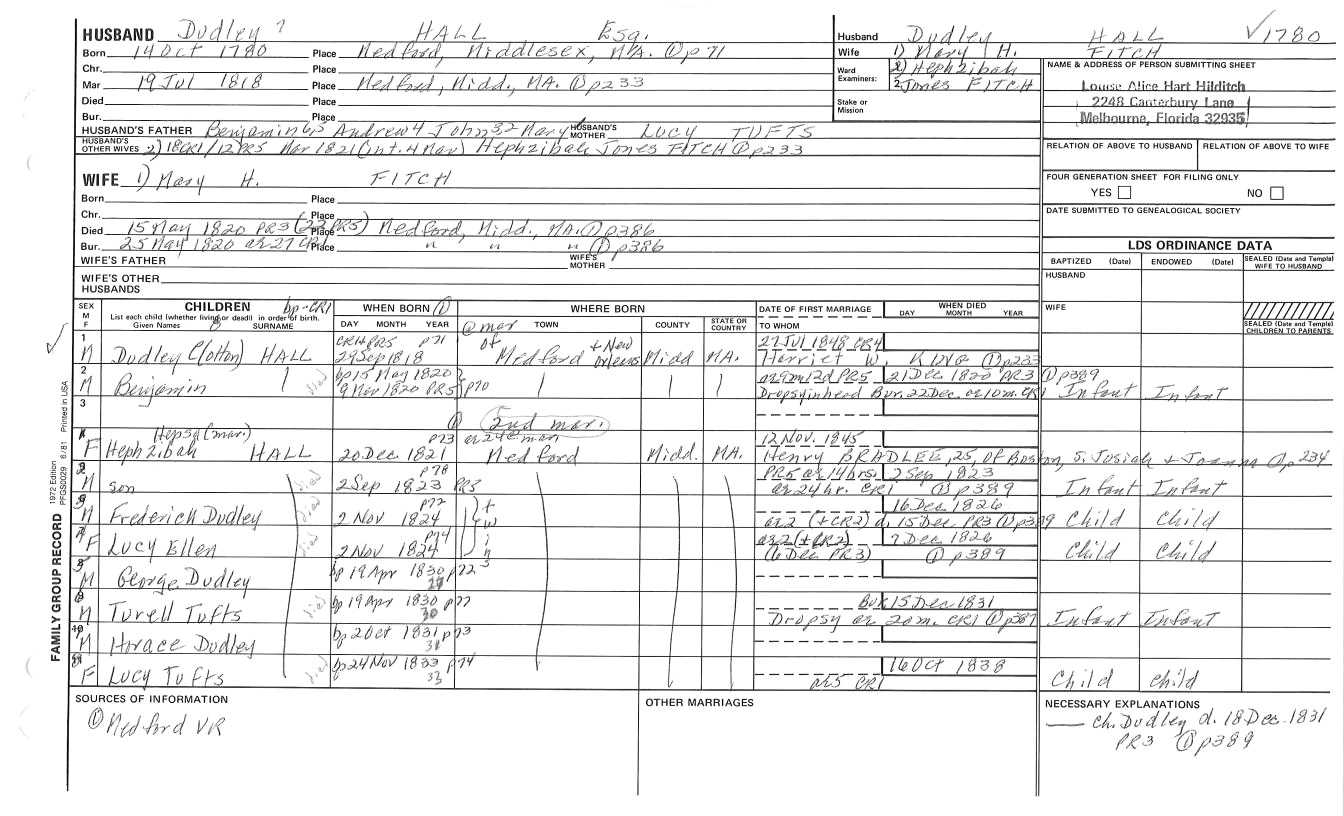 HUSBAND Dudley ? HALL Esq.
Born 14 Oct 1780 Place Medford, Middlesex, MA. ① p71
Chr. Place
Mar 19 Jul 1818 Place Medford, Midd., MA. ① p233
Died Place
Bur. Place
HUSBAND'S FATHER Benjamin 6,5 Andrew 4 John 3,2 Mary 1 HUSBAND'S MOTHER LUCY TUFTS
HUSBAND'S OTHER WIVES 2) 18 CR1/12 PR5 Mar 1821 (int. 4 Mar) Hephzibah Jones FITCH ① p233
Husband Dudley HALL ✓1780
Wife 1) Mary H. FITCH
Ward Examiners: 1. 2) Hephzibah
2. Jones FITCH
Stake or Mission
NAME & ADDRESS OF PERSON SUBMITTING SHEET
Louise Alice Hart Hilditch
2248 Canterbury Lane
Melbourne, Florida 32935
RELATION OF ABOVE TO HUSBAND RELATION OF ABOVE TO WIFE
FOUR GENERATION SHEET FOR FILING ONLY
YES NO
DATE SUBMITTED TO GENEALOGICAL SOCIETY
WIFE 1) Mary H. FITCH
Born Place
Chr. Place
Died 15 May 1820 PR3 (22 PR5) Place Medford, Midd., MA. ① p386
Bur. 25 May 1820 ae 27 CR1 Place " " " ① p386
WIFE'S FATHER WIFE'S MOTHER
WIFE'S OTHER HUSBANDS
LDS ORDINANCE DATA
BAPTIZED (Date) ENDOWED (Date) SEALED (Date and Temple) WIFE TO HUSBAND
HUSBAND
WIFE
SEALED (Date and Temple) CHILDREN TO PARENTS
SEX M F CHILDREN bp-CR1
List each child (whether living or dead) in order of birth.
Given Names SURNAME
WHEN BORN ①
DAY MONTH YEAR
WHERE BORN
@ mar TOWN COUNTY STATE OR COUNTRY
DATE OF FIRST MARRIAGE
TO WHOM
WHEN DIED
DAY MONTH YEAR
1 CR1+PR5 p71 of + New 27 Jul 1848 CR4
M Dudley C(otton) HALL 29 Sep 1818 Medford Orleans Midd MA. Herriet W. ① p233
2 died bp 15 May 1820 ae 9m 12d PR5 21 Dec 1820 PR3 ① p389
M Benjamin 9 Mar 1820 PR5 p70 Dropsy in head Bur. 22 Dec. ae 10 m. CR1 Infant Infant
3
① 2nd mar.
Hepsy (mar.) p73 ae 24 @ mar 12 Nov. 1845
F Hephzibah HALL 20 Dec 1821 Medford Midd. MA. Henry BRADLEE, 25, of Boston, s. Josiah + Joanna ① p234
died p78 PR5 ae 14 hrs. 2 Sep 1823
M son 2 Sep 1823 PR3 ae 24 hr. CR1 ① p389 Infant Infant
died p72 16 Dec 1826
M Frederick Dudley 2 Nov 1824 twins ae 2 (+CR2) d. 15 Dec PR3 ① p389 Child Child
died p74 ae 2 (+CR2) 7 Dec 1826
F Lucy Ellen 2 Nov 1824 (6 Dec PR3) ① p389 Child Child
bp 19 Apr 1830 p72
M George Dudley
died bp 19 Apr 1830 p77 Bur 15 Dec 1831
M Turell Tufts 30 Dropsy ae 20 m. CR1 ① p389 Infant Infant
10 bp 2 Oct 1831 p73
M Horace Dudley 31
died bp 24 Nov 1833 p74 16 Oct 1838
F Lucy Tufts 33 ae 5 CR1 Child Child
SOURCES OF INFORMATION
① Medford VR
OTHER MARRIAGES
NECESSARY EXPLANATIONS
— ch. Dudley d. 18 Dec. 1831
PR3 ① p389
FAMILY GROUP RECORD 1972 Edition PFGS0029 6/81 Printed in USA